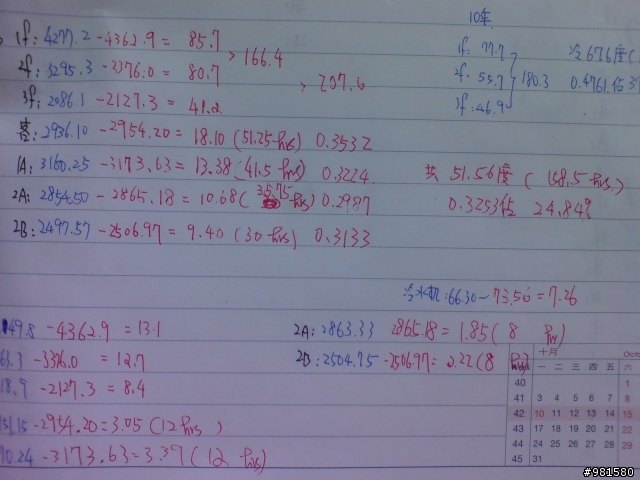 10年
1f: 4277.2 - 4362.9 = 85.7
2f: 3295.3 - 3376.0 = 80.7
3f: 2086.1 - 2127.3 = 41.2
> 166.4
> 207.6
1f: 77.7
2f: 55.7
3f: 46.9
180.3
冷676度(
0.4761倍
2936.10 - 2954.20 = 18.10 (51.25 hrs) 0.3532
1A: 3160.25 - 3173.63 = 13.38 (41.5 hrs) 0.3224
2A: 2854.50 - 2865.18 = 10.68 (35.75 hrs) 0.2987
2B: 2497.57 - 2506.97 = 9.40 (30 hrs) 0.3133
共 51.56度 (158.5 hrs)
0.3253倍 24.84%
冷水机: 66.30 - 73.56 = 7.26
49.8 - 4362.9 = 13.1
63.3 - 3376.0 = 12.7
18.9 - 2127.3 = 8.4
51.15 - 2954.20 = 3.05 (12 hrs)
70.24 - 3173.63 = 3.39 (12 hrs)
2A: 2863.33 2865.18 = 1.85 (8 hrs)
2B: 2504.75 - 2506.97 = 2.22 (8 hrs)
十月 Octo
一 二 三 四 五 六
40 1
41 3 4 5 6 7 8
42 10 11 12 13 14 15
43 17 18 19 20 21 22
44 24 25 26 27 28 29
45 31
#981580